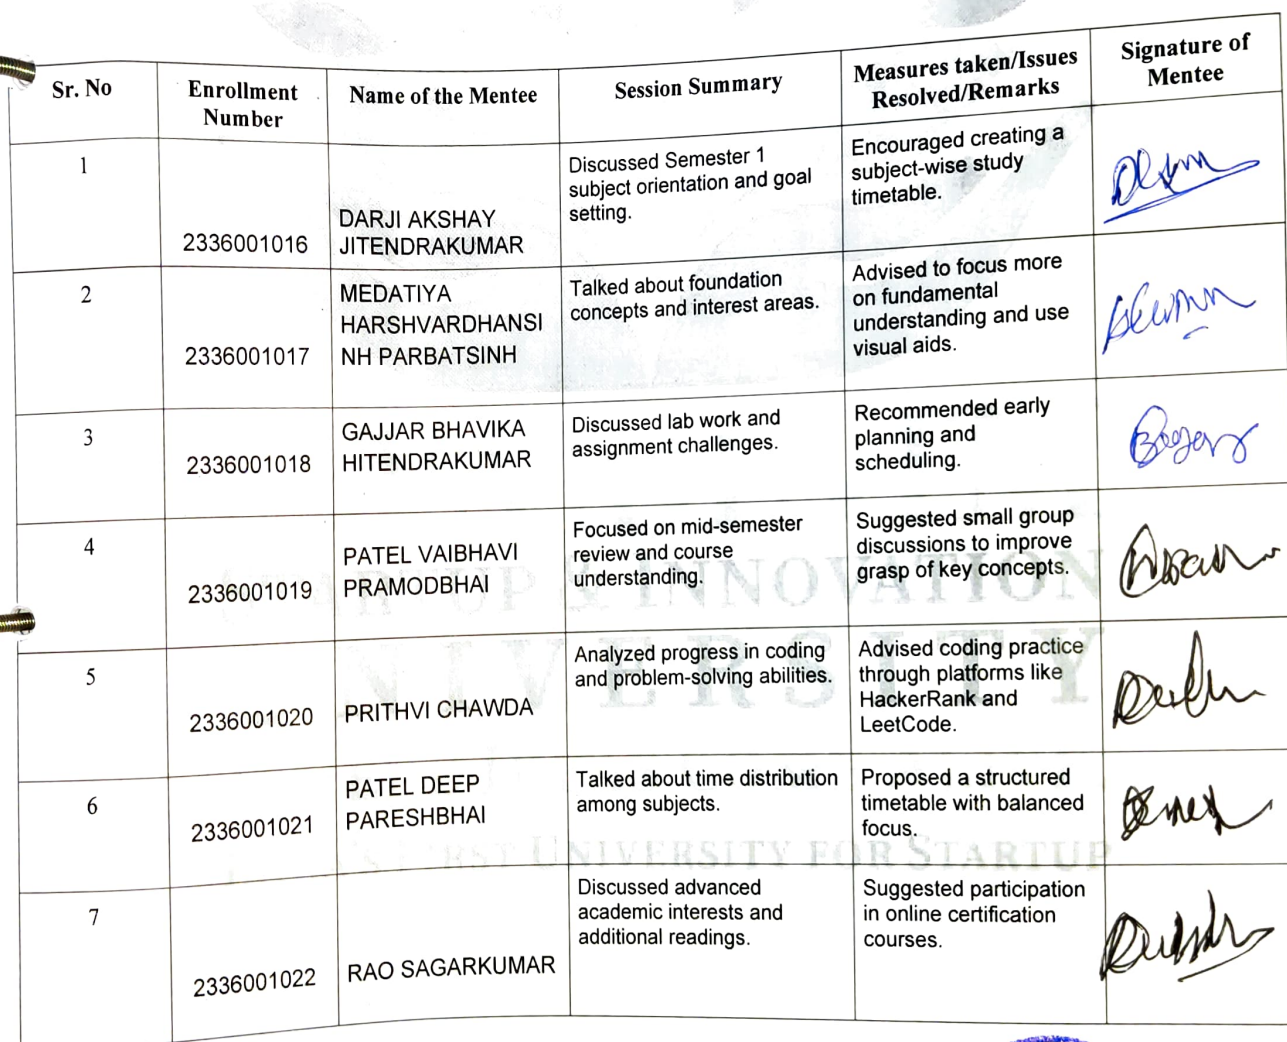 Sr. No
Enrollment
Number
Name of the Mentee
Session Summary
Measures taken/Issues
Resolved/Remarks
Signature of
Mentee
1
2336001016
DARJI AKSHAY
JITENDRAKUMAR
Discussed Semester 1
subject orientation and goal
setting.
Encouraged creating a
subject-wise study
timetable.
2
2336001017
MEDATIYA
HARSHVARDHANSI
NH PARBATSINH
Talked about foundation
concepts and interest areas.
Advised to focus more
on fundamental
understanding and use
visual aids.
3
2336001018
GAJJAR BHAVIKA
HITENDRAKUMAR
Discussed lab work and
assignment challenges.
Recommended early
planning and
scheduling.
4
2336001019
PATEL VAIBHAVI
PRAMODBHAI
Focused on mid-semester
review and course
understanding.
Suggested small group
discussions to improve
grasp of key concepts.
5
2336001020
PRITHVI CHAWDA
Analyzed progress in coding
and problem-solving abilities.
Advised coding practice
through platforms like
HackerRank and
LeetCode.
6
2336001021
PATEL DEEP
PARESHBHAI
Talked about time distribution
among subjects.
Proposed a structured
timetable with balanced
focus.
7
2336001022
RAO SAGARKUMAR
Discussed advanced
academic interests and
additional readings.
Suggested participation
in online certification
courses.
UP & INNOVATION
NIVERSITY
FIRST UNIVERSITY FOR STARTUP